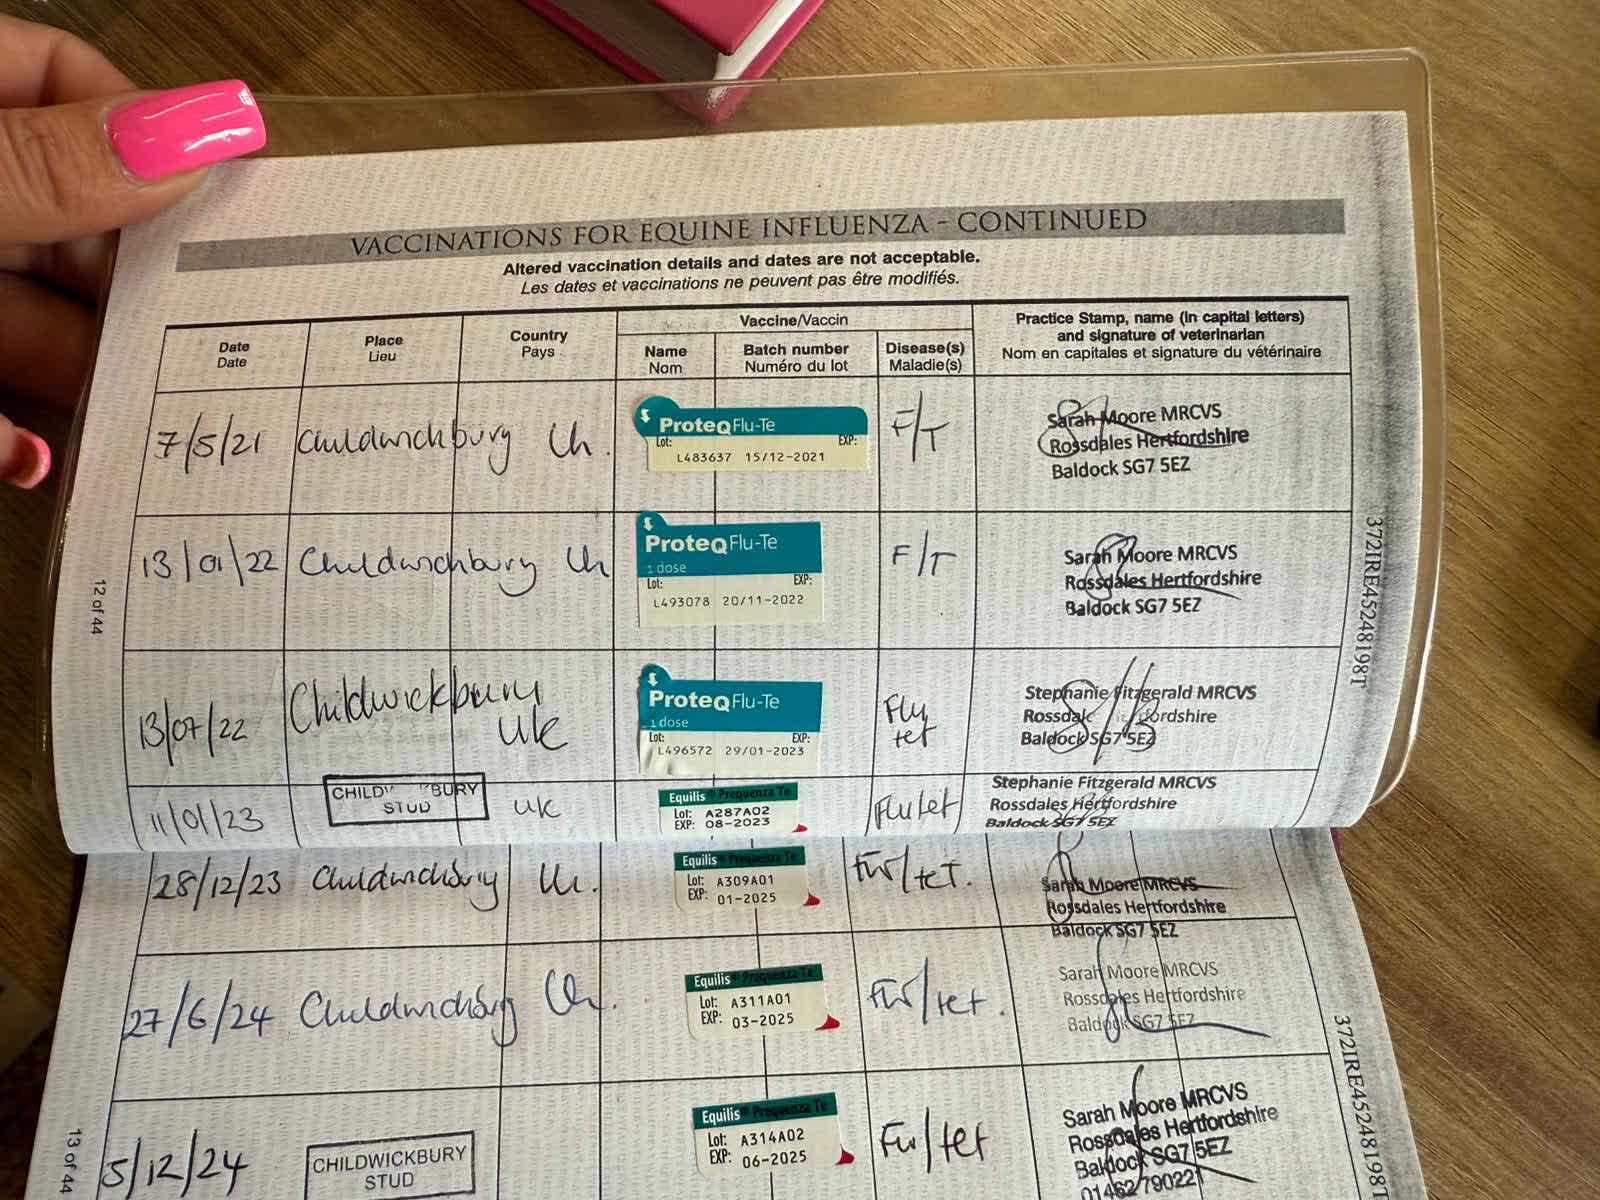 VACCINATIONS FOR EQUINE INFLUENZA - CONTINUED
Altered vaccination details and dates are not acceptable.
Les dates et vaccinations ne peuvent pas être modifiés.
Date
Date
Place
Lieu
Country
Pays
Vaccine/Vaccin
Name
Nom
Batch number
Numéro du lot
Disease(s)
Maladie(s)
Practice Stamp, name (in capital letters)
and signature of veterinarian
Nom en capitales et signature du vétérinaire
7/5/21 Childwickbury Uk.
ProteqFlu-Te
Lot: EXP:
L483637 15/12-2021
F/T
Sarah Moore MRCVS
Rossdales Hertfordshire
Baldock SG7 5EZ
13/01/22 Childwickbury Uk
ProteqFlu-Te
1 dose
Lot: EXP:
L493078 20/11-2022
F/T
Sarah Moore MRCVS
Rossdales Hertfordshire
Baldock SG7 5EZ
13/07/22 Childwickbury
Uk
ProteqFlu-Te
1 dose
Lot: EXP:
L496572 29/01-2023
Flu
tet
Stephanie Fitzgerald MRCVS
Rossdales Hertfordshire
Baldock SG7 5EZ
11/01/23
CHILDWICKBURY
STUD
UK
Equilis® Prequenza Te
Lot: A287A02
EXP: 08-2023
Flu tet
Stephanie Fitzgerald MRCVS
Rossdales Hertfordshire
Baldock SG7 5EZ
12 of 44
372IRE45248198T
28/12/23 Childwickbury Uk.
Equilis® Prequenza Te
Lot: A309A01
EXP: 01-2025
Flu/tet.
Sarah Moore MRCVS
Rossdales Hertfordshire
Baldock SG7 5EZ
27/6/24 Childwickbury Uk.
Equilis® Prequenza Te
Lot: A311A01
EXP: 03-2025
Flu/tet.
Sarah Moore MRCVS
Rossdales Hertfordshire
Baldock SG7 5EZ
5/12/24
CHILDWICKBURY
STUD
Equilis® Prequenza Te
Lot: A314A02
EXP: 06-2025
Flu/tet
Sarah Moore MRCVS
Rossdales Hertfordshire
Baldock SG7 5EZ
01462 790221
13 of 44
372IRE45248198T